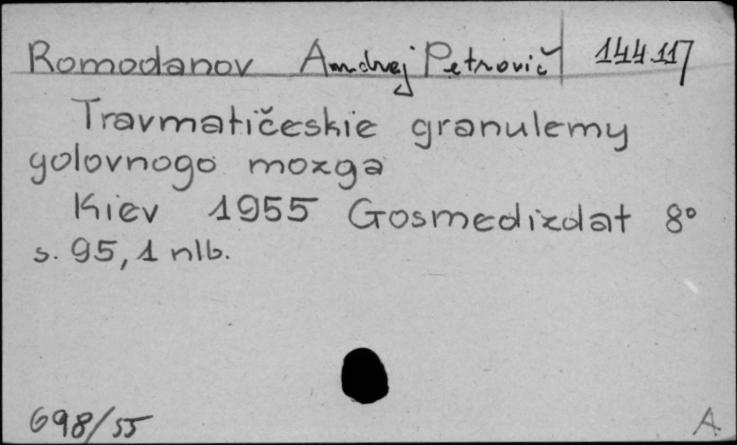 Romodanov Andrej Petrovič 144.117
Travmatičeskie granulemy
golovnogo mozga
Kiev 1955 Gosmedizdat 8°
s. 95, 1 nlb.
698/55 A